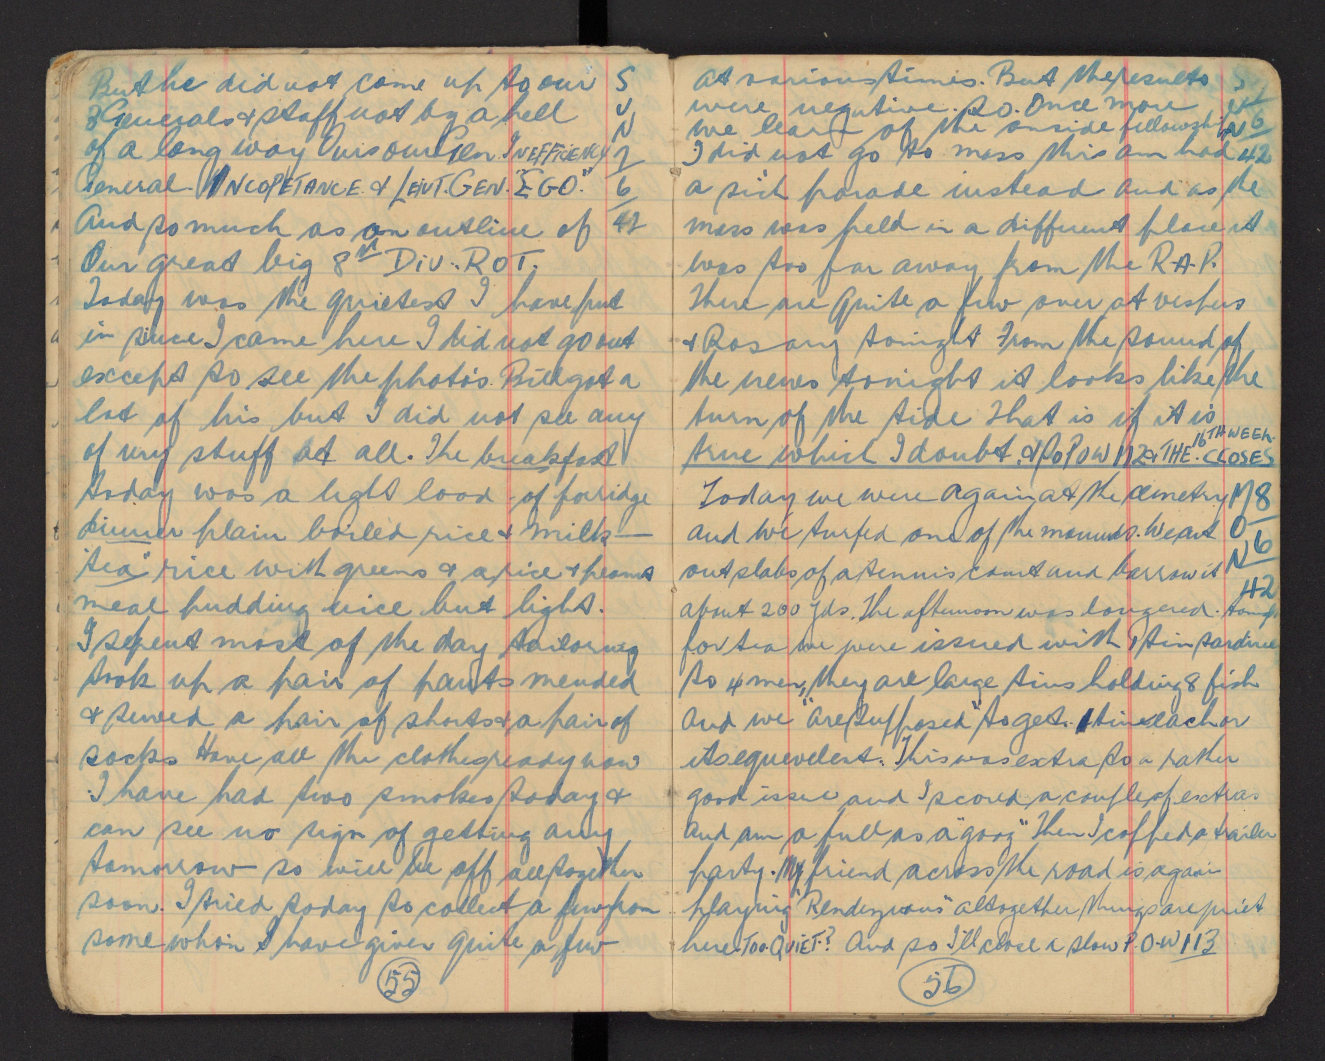 But he did not come up to our S
3 Generals & staff not by a hell U
of a long way Qvis our Gen. INEFFICIENCY N
General. INCOPETANCE. & LEIUT. GEN. "EGO." 7
And so much as an outline of 6
Our great big 8th DIV. ROT. 42
Today was the quietest I have put
in since I came here I did not go out
except to see the photo's. Bill got a
lot of his but I did not see any
of my stuff at all. The breakfast
today was a light load of porridge
dinner plain boiled rice & milk —
"tea" rice with greens & a rice & peanut
meal pudding nice but light.
I sepent most of the day tailoring
took up a pair of pants mended
& sewed a pair of shorts & a pair of
socks Have all the clothes ready now
I have had two smokes today &
can see no sign of getting any
tomorrow so will be off alltogether
soon. I tried today to collect a few from
some whom I have given quite a few
55
at various times. But the results S
were negative. so. Once more U 7
we learn of the onside fellowship N 6
I did not go to mass this am had 42
a sick parade instead and as the
mass was held in a different place it
was too far away from the R.A.P.
There are quite a few over at vespers
& Rosary tonight From the sound of
the news tonight it looks like the
turn of the tide That is if it is
true which I doubt. & so POW 112 & THE 16TH WEEK CLOSES
Today we were again at the cemetry M 8
and we turfed one of the mounds. We cut O
out slabs of a tennis court and barrow it N 6
about 200 yds. The afternoon was longered. tonight 42
for tea we were issued with 1 tin sardines
to 4 men, they are large tins holding 8 fish
and we "are supposed" to get. 1 tin each or
its equevelent. This was extra to a rather
good issue and I scored a couple of extras
and am a full as a "goog" Then I copped a trailer
party. My friend across the road is again
playing "Rendezvous" altogether things are quiet
here. TOO QUIET.? And so I'll close a slow P.O.W 113
56